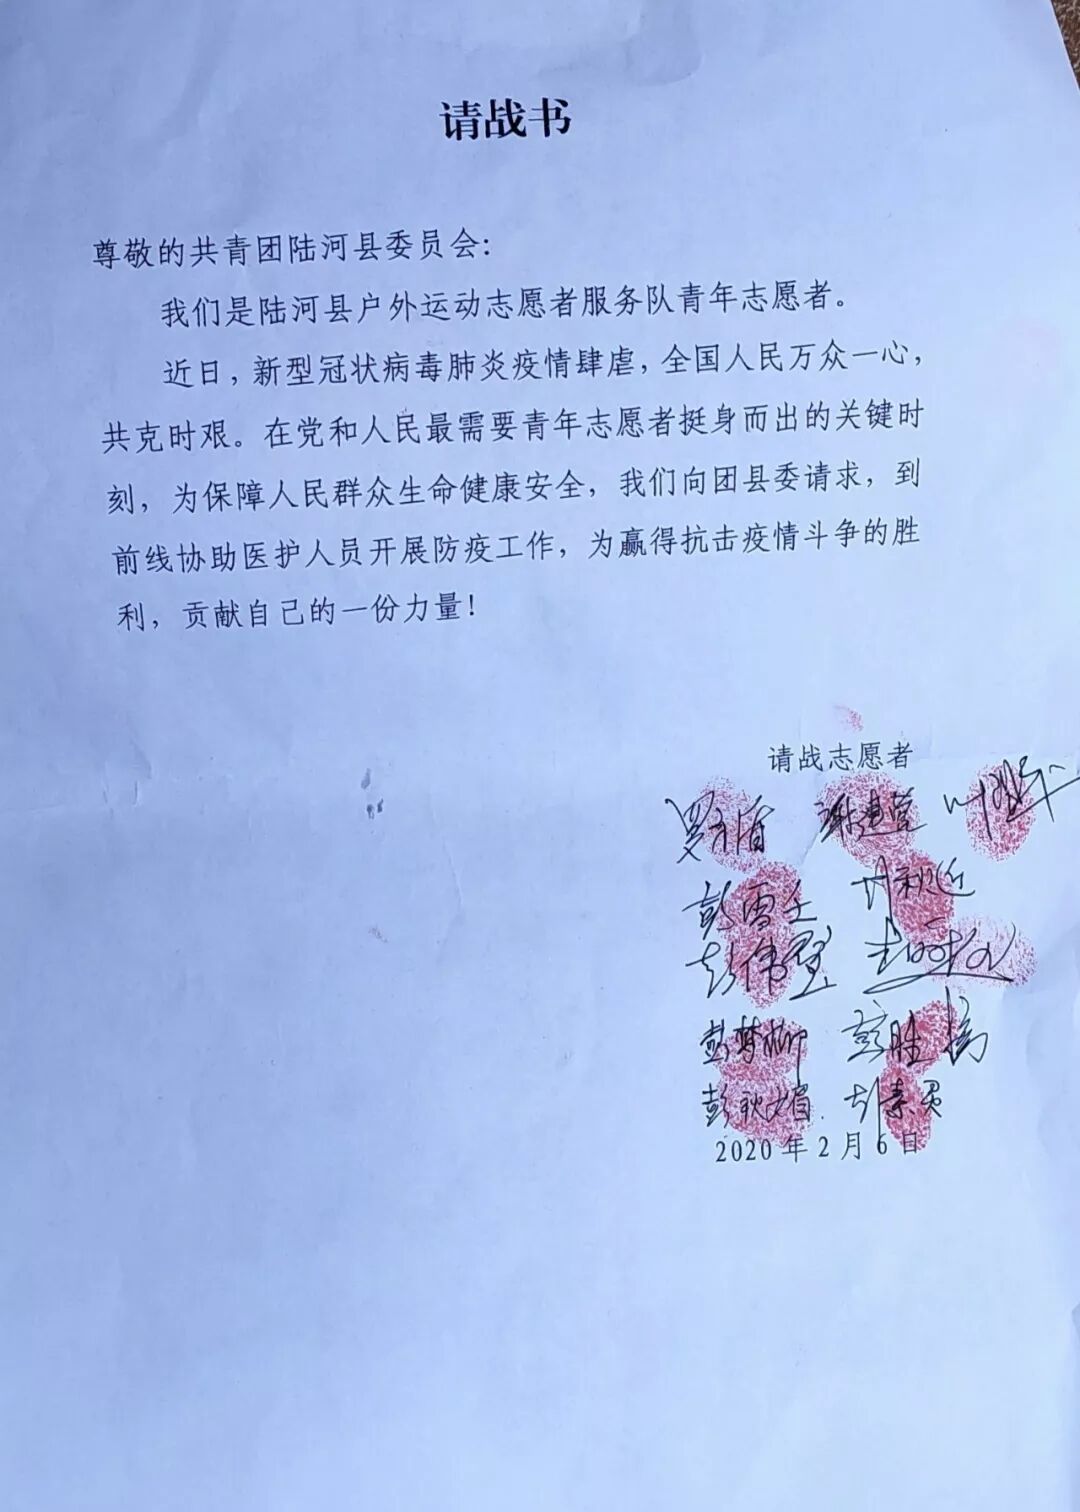 请战书
尊敬的共青团陆河县委员会：
我们是陆河县户外运动志愿者服务队青年志愿者。
近日，新型冠状病毒肺炎疫情肆虐，全国人民万众一心，
共克时艰。在党和人民最需要青年志愿者挺身而出的关键时
刻，为保障人民群众生命健康安全，我们向团县委请求，到
前线协助医护人员开展防疫工作，为赢得抗击疫情斗争的胜
利，贡献自己的一份力量！
请战志愿者
彭梦柳
彭秋媚
2020年2月6日